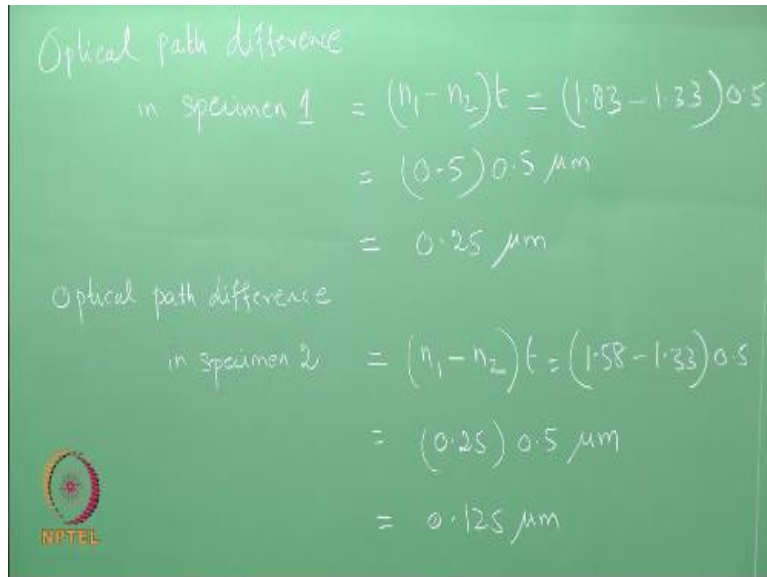 Optical path difference
in specimen 1 = (n₁ - n₂)t = (1.83 - 1.33)0.5
= (0.5)0.5 μm
= 0.25 μm
Optical path difference
in specimen 2 = (n₁ - n₂)t = (1.58 - 1.33)0.5
= (0.25)0.5 μm
= 0.125 μm
NPTEL